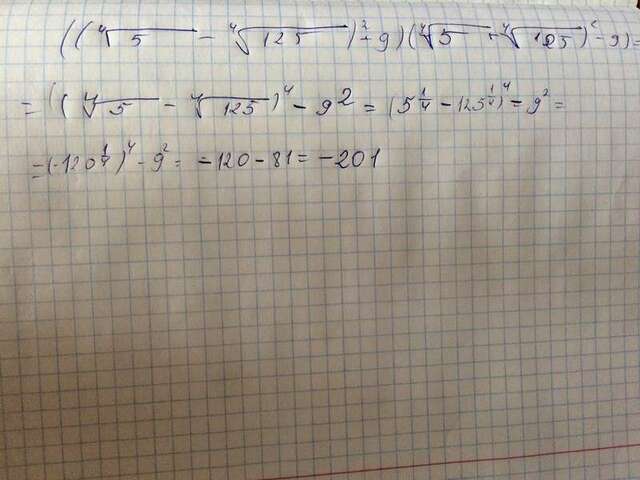 ((∜5 - ∜125)² + 9)(∜5 + ∜125)² - 9) =
= ((∜5 - ∜125)⁴ - 9² = (5^{1/4} - 125^{1/4})⁴ - 9² =
= (-120^{1/4})⁴ - 9² = -120 - 81 = -201